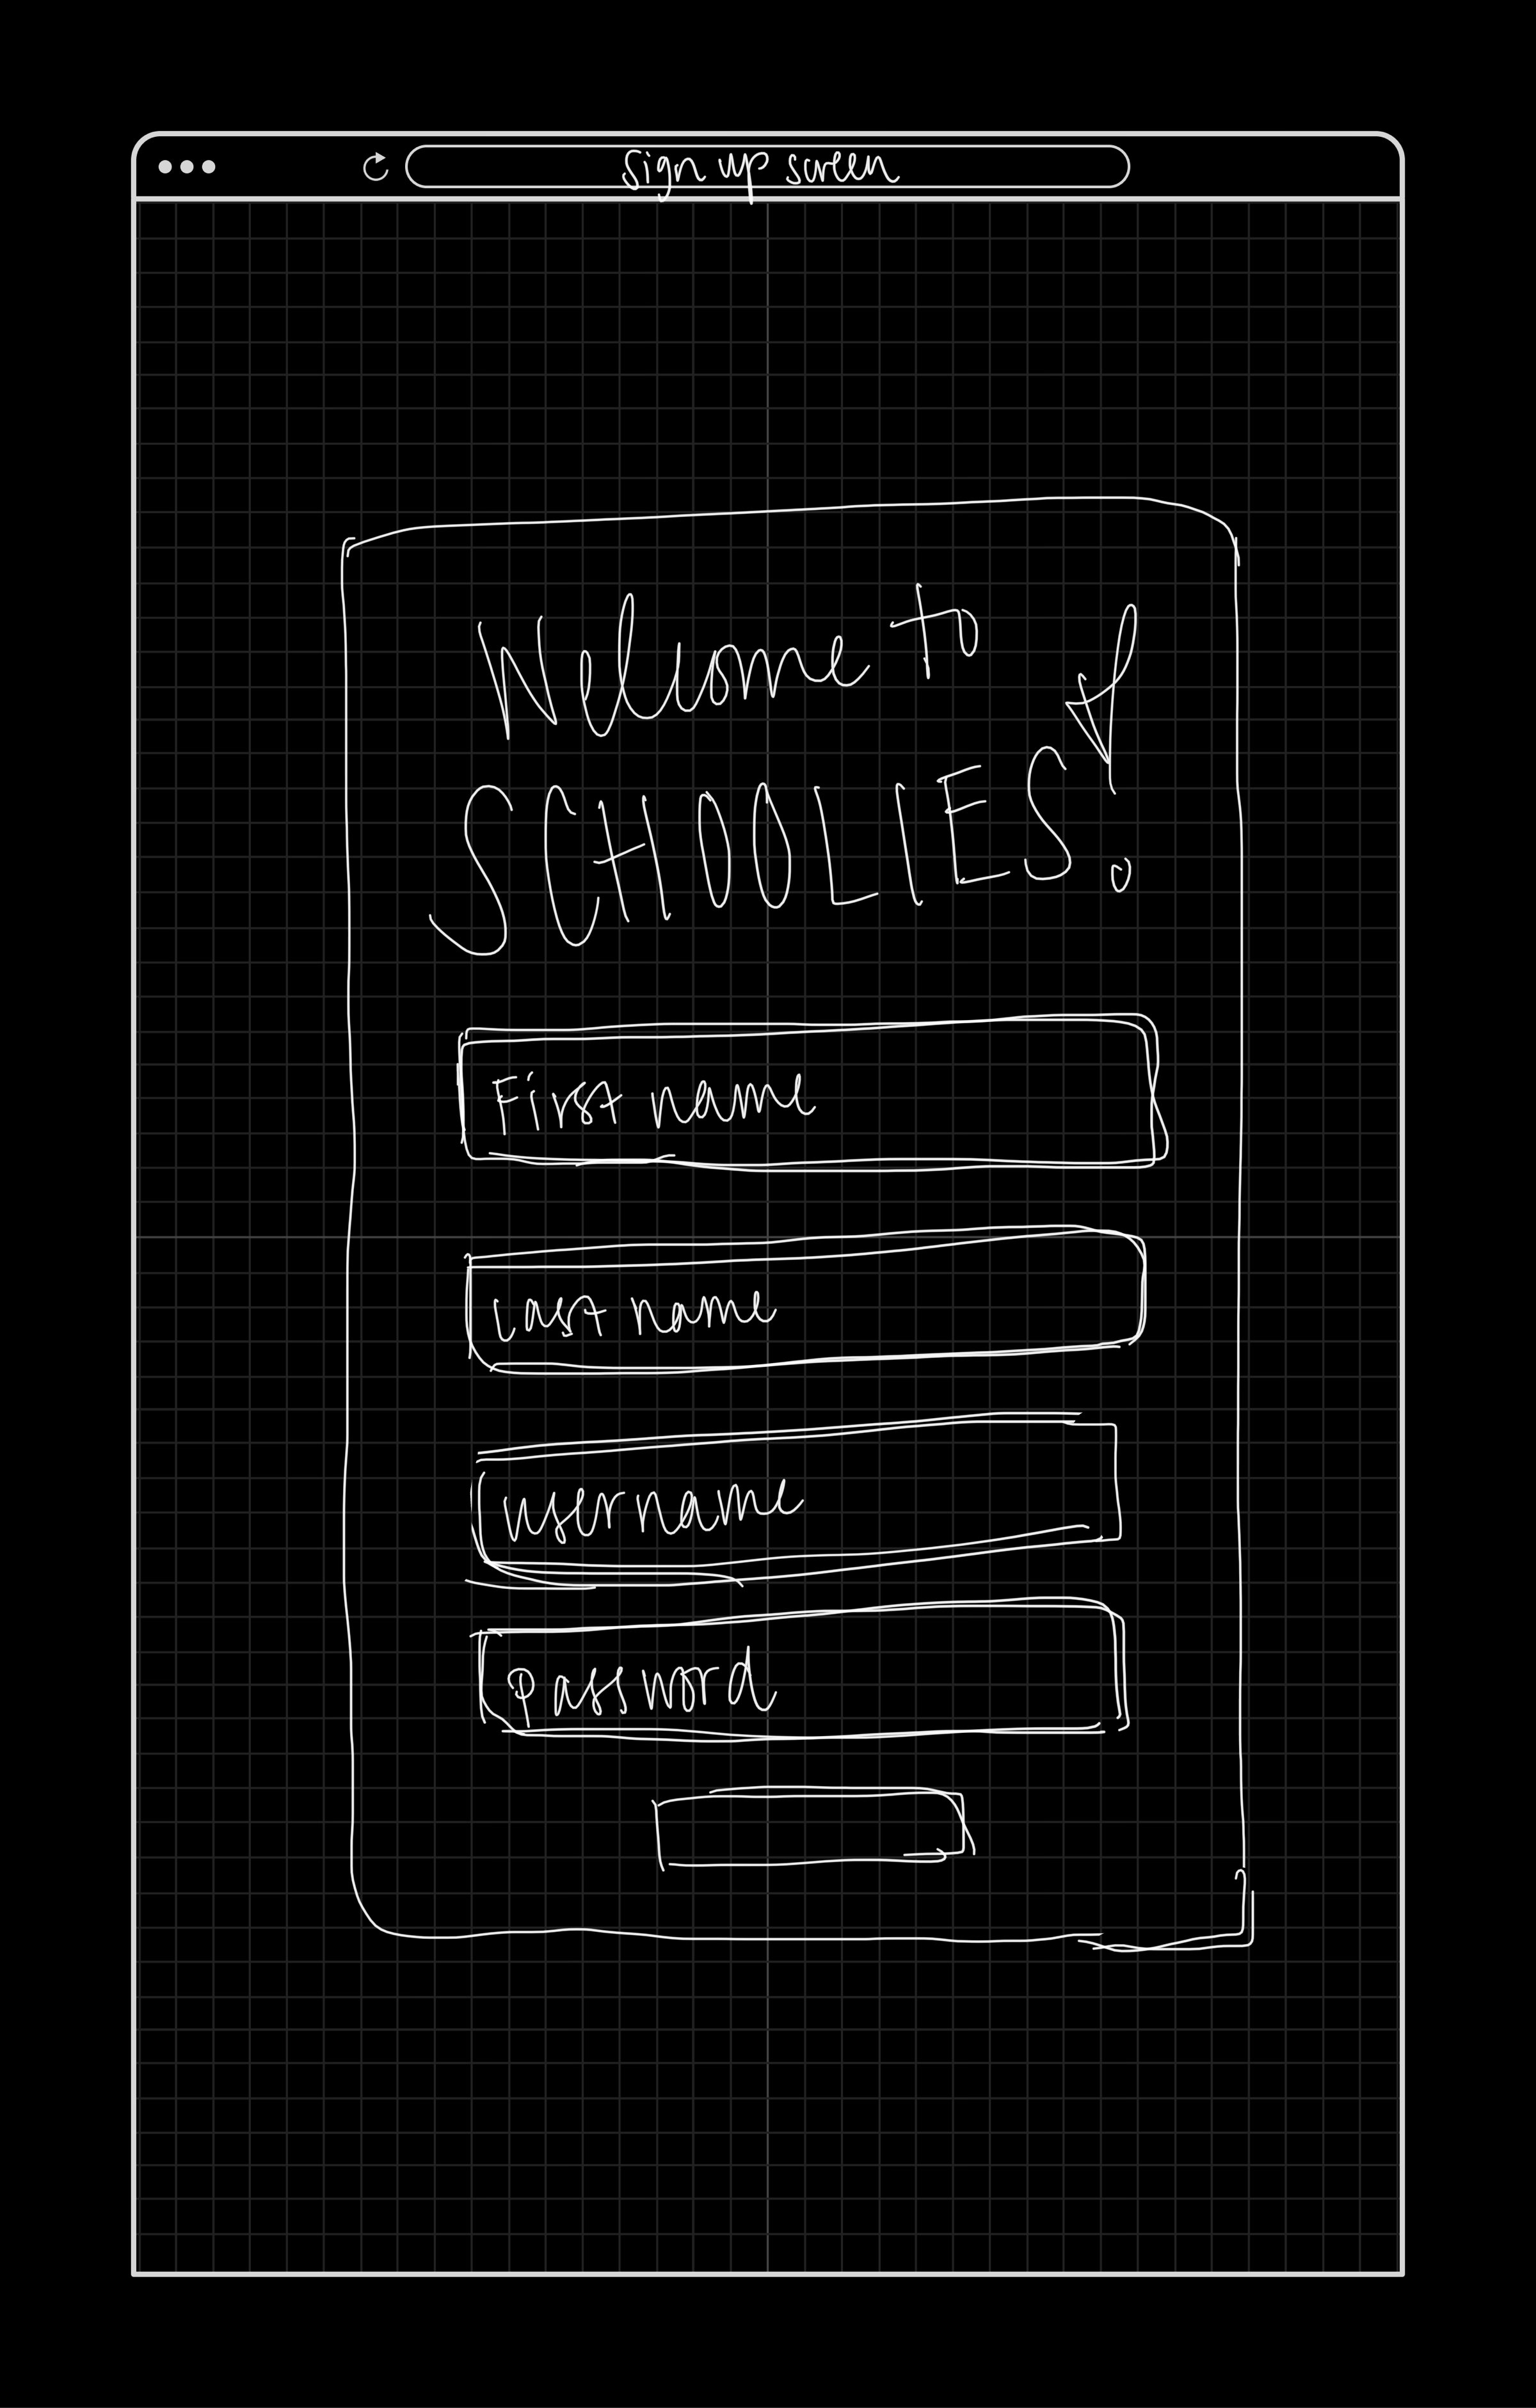 Sign up screen
Welcome to
SCHOOLIES!
First name
Last name
username
password